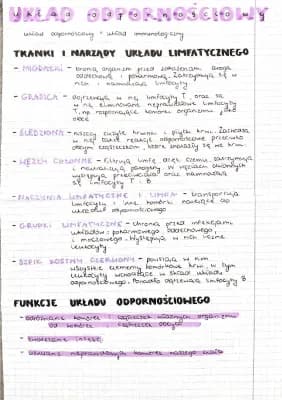 UKŁAD ODPORNOŚCIOWY
układ odpornościowy = układ immunologiczny
TKANKI I NARZĄDY UKŁADU LIMFATYCZNEGO
- MIGDAŁKI - chronią organizm przed zakażeniami drogą
oddechową i pokarmową. Zatrzymują się w
nich i namnażają limfocyty
- GRASICA - dojrzewają w niej limfocyty T oraz są
w niej eliminowane nieprawidłowe limfocyty
T, np. rozpoznające komórki organizmu jako
obce
- ŚLEDZIONA - niszczy zużyte krwinki i płytki krwi. Zachodzą
w niej także reakcje odpornościowe przeciwko
obcym cząsteczkom, które znalazły się we krwi.
- WĘZŁY CHŁONNE - filtrują limfę, dzięki czemu zatrzymują
i neutralizują patogeny. W węzłach chłonnych
wytwarzają przeciwciała oraz namnażają
się limfocyty T i B
- NACZYNIA LIMFATYCZNE I LIMFA - transportują
limfocyty i inne komórki należące do
układu odpornościowego
- GRUDKI LIMFATYCZNE - chronią przed infekcjami
układów: pokarmowego, oddechowego,
i moczowego. Występują w nich liczne
limfocyty
- SZPIK KOSTNY CZERWONY - powstają w nim
wszystkie elementy komórkowe krwi, w tym
leukocyty wchodzące w skład układu
odpornościowego. Ponadto dojrzewają limfocyty B
FUNKCJE UKŁADU ODPORNOŚCIOWEGO
- odróżnianie komórek i cząsteczek własnych organizmu
od komórek i cząsteczek obcych
- zwalczanie infekcji
- usuwanie nieprawidłowych komórek naszego ciała